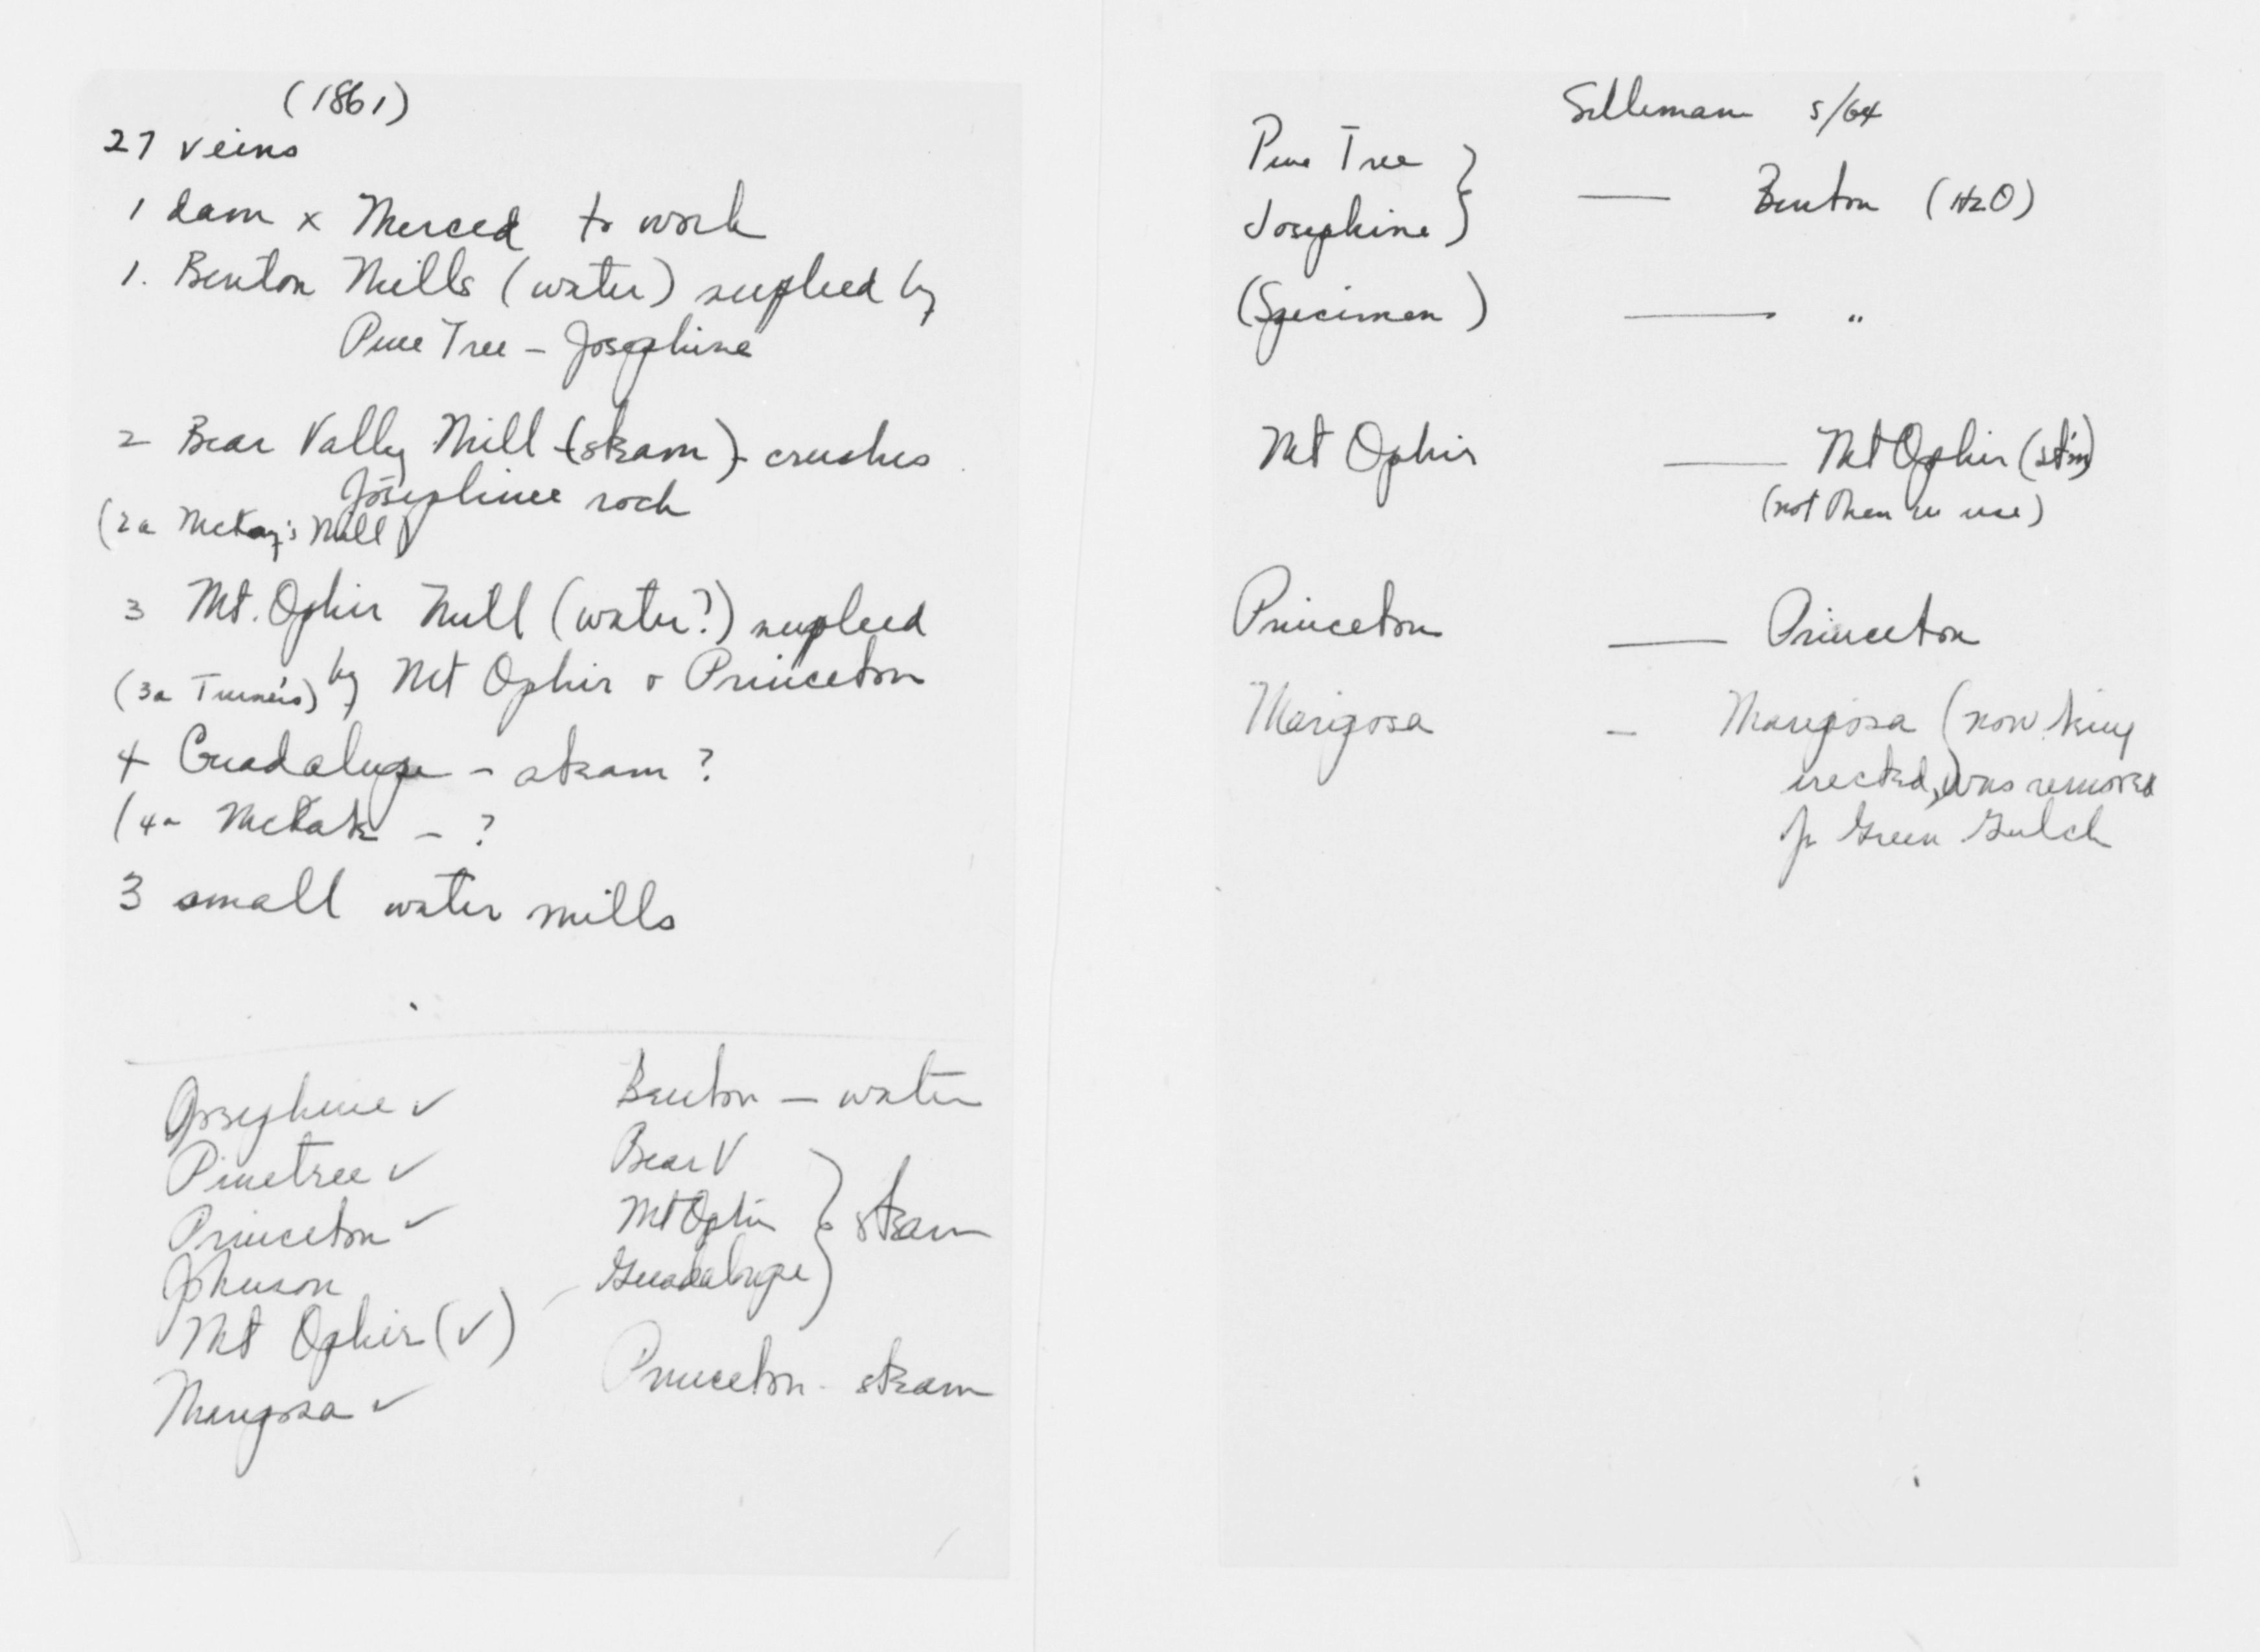 (1861)
27 veins
1 dam x Merced to work
1. Benton Mills (water) supplied by
Pine Tree - Josephine
2 Bear Vally Mill - (steam) - crushes
Josephine rock
(2a McKay's Mill)
3 Mt. Ophir Mill (water?) supplied
(3a Turner's) by Mt Ophir & Princeton
4 Guadalupe - steam ?
(4a - ?
3 small water mills
Josephine ✓
Pinetree ✓
Princeton ✓
Johnson
Mt Ophir (✓)
Mariposa ✓
Benton - water
Bear V
Mt Ophir } steam
Guadalupe
Princeton - steam
Silleman 5/64
Pine Tree }
Josephine } — Benton (H2O)
(Specimen) — "
Mt Ophir — Mt Ophir (st'm)
(not then in use)
Princeton — Princeton
Mariposa - Mariposa (now being
erected, was removed
fr Green Gulch